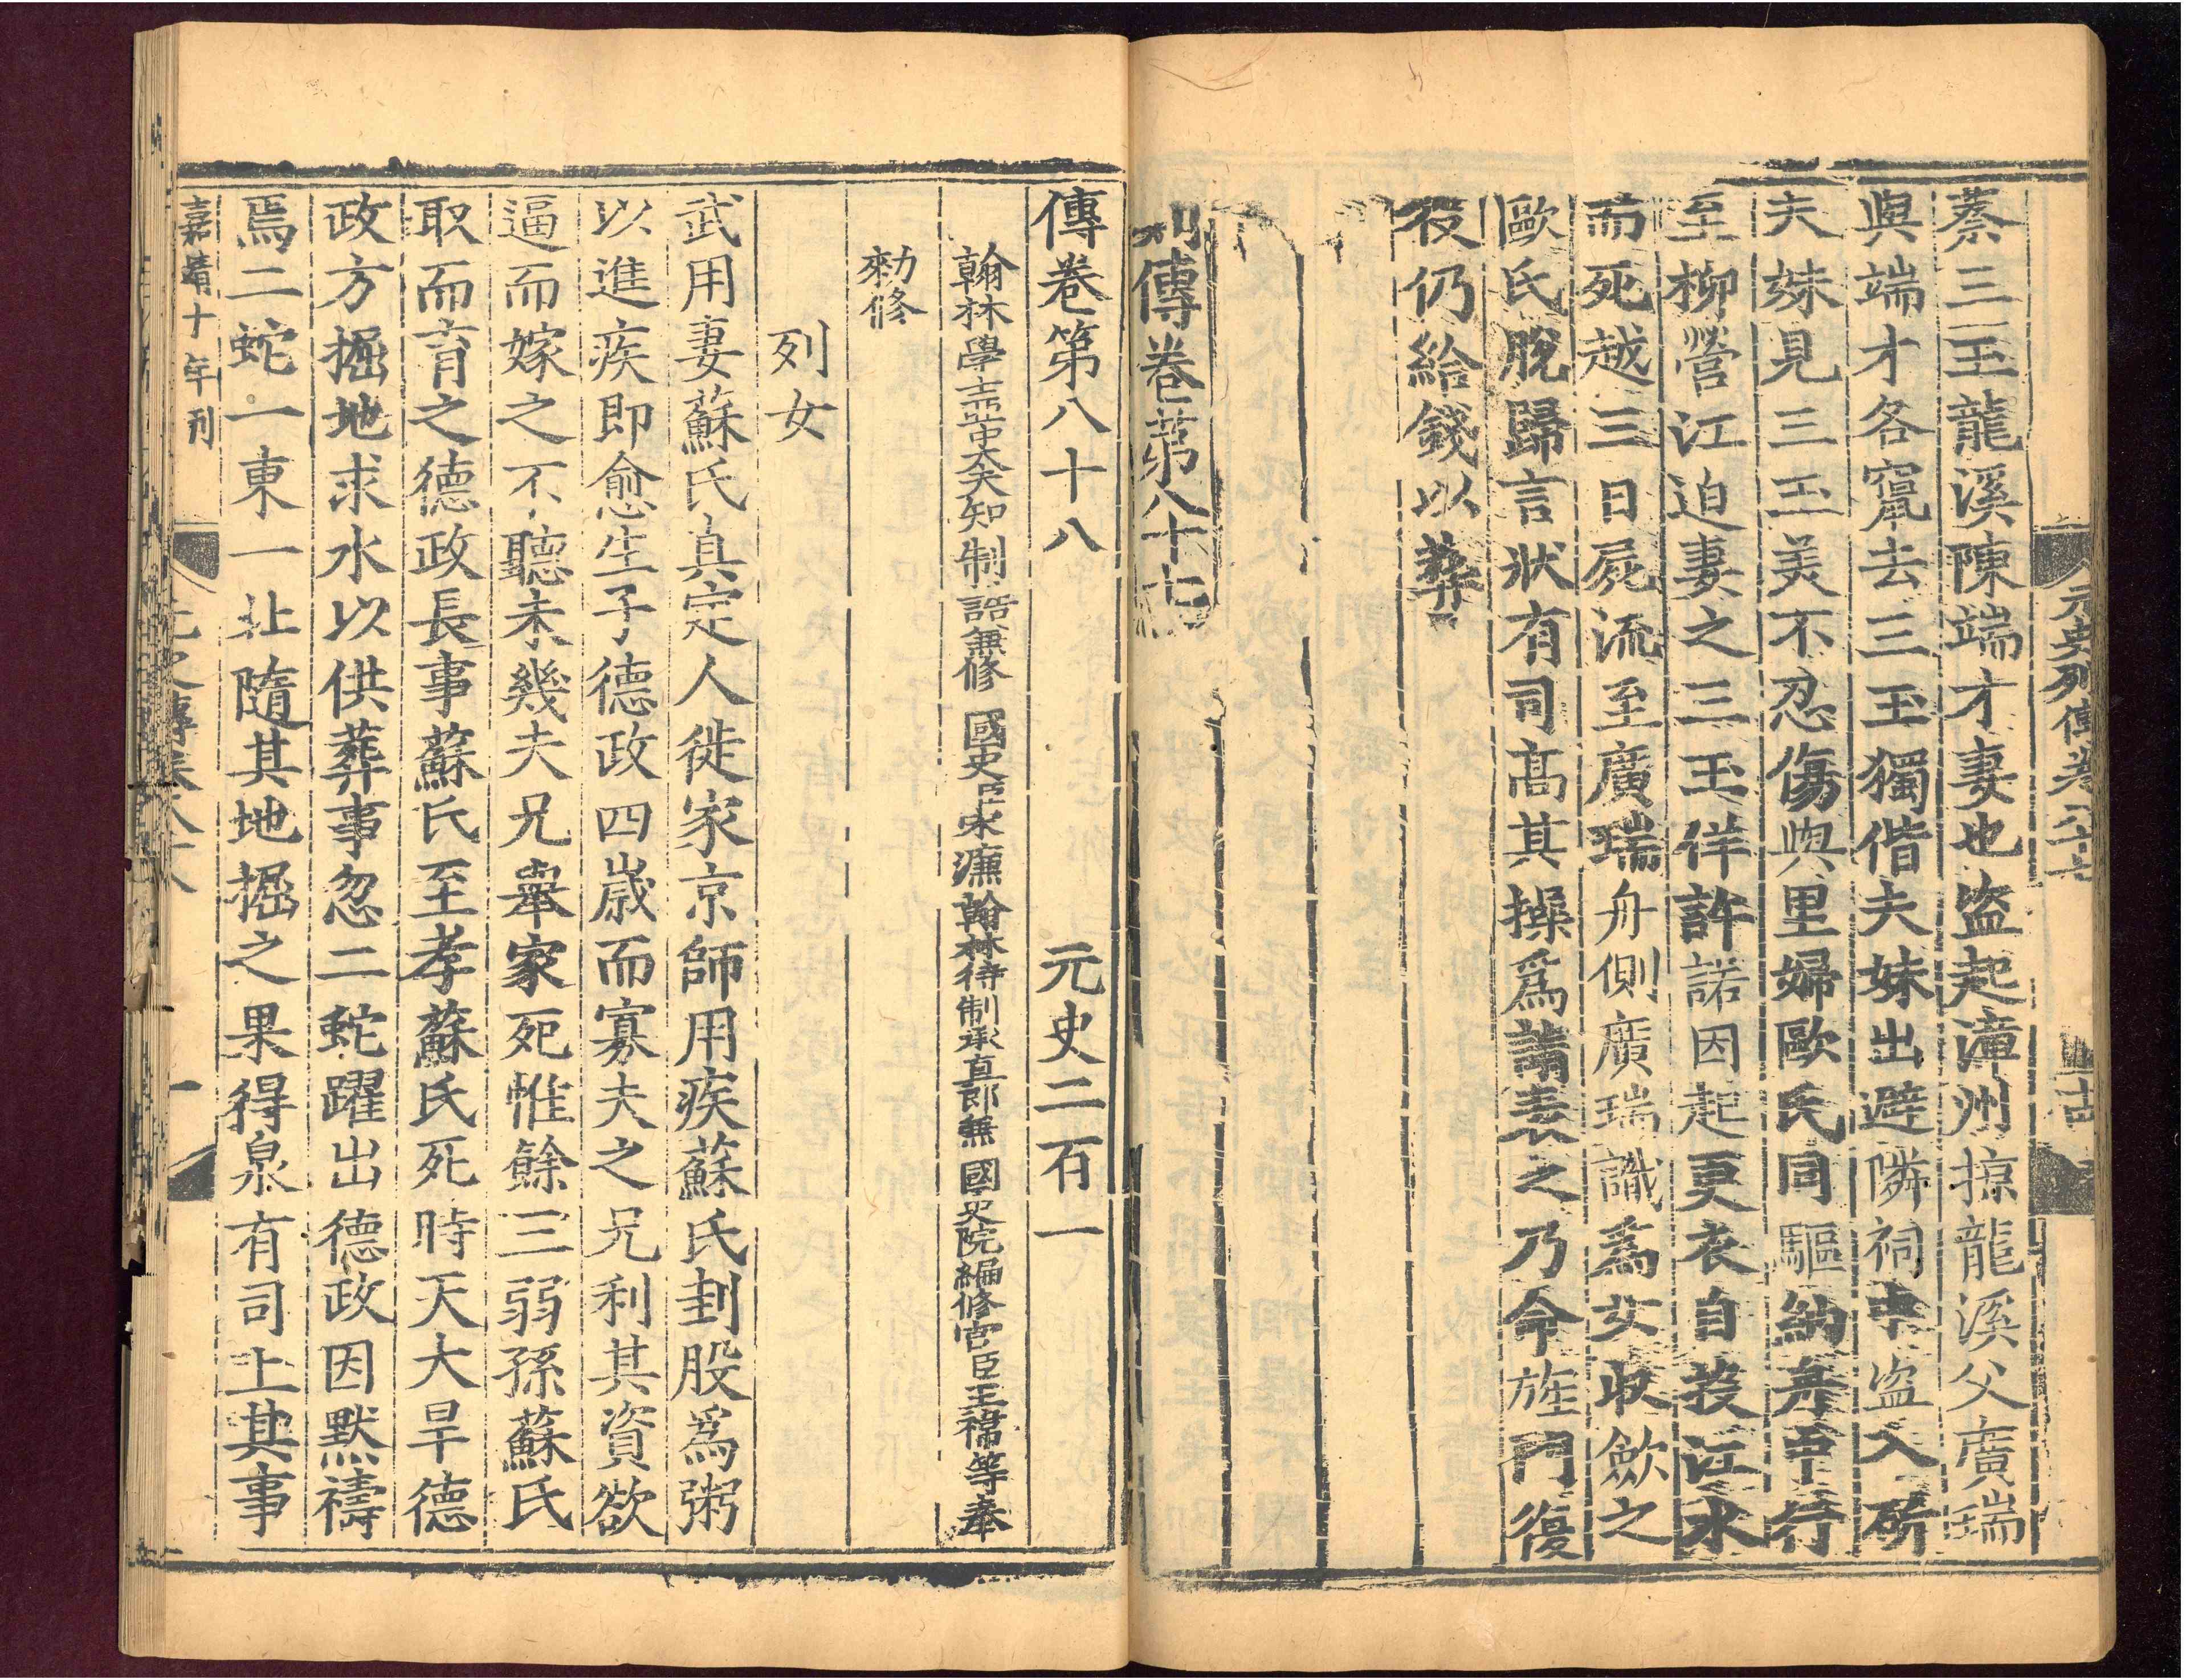 元史列傳卷八十七
十古
蔡三玉龍溪陳端才妻也盜起漳州掠龍溪父廣瑞
與端才各竄去三玉獨偕夫妹出避隣祠中盜入斫
夫妹見三玉美不忍傷與里婦歐氏同驅納舟中行
至柳營江迫妻之三玉佯許諾因起更衣自投江水
而死越三日屍流至廣瑞舟側廣瑞識為女収歛之
歐氏脫歸言狀有司髙其操爲請表之乃令旌門復
役仍給錢以葬
列傳卷第八十七
傳卷第八十八 元史二百一
翰林學士亞中大夫知制誥兼修 國史臣宋濂翰林待制承直郎兼 國史院編修官臣王禕等奉
勑修
列女
武用妻蘇氏真定人徙家京師用疾蘇氏刲股爲粥
以進疾即愈生子德政四歲而寡夫之兄利其資欲
逼而嫁之不聽未幾夫兄舉家死惟餘三弱孫蘇氏
取而育之德政長事蘇氏至孝蘇氏死時天大旱德
政方掘地求水以供葬事忽二蛇躍出德政因默禱
焉二蛇一東一北隨其地掘之果得泉有司上其事
嘉靖十年刊
元史傳卷八十八
一